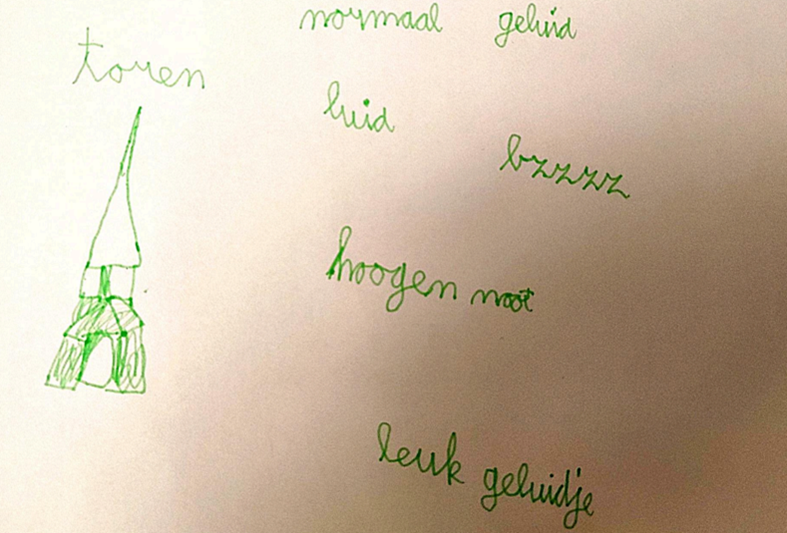 toren
normaal geluid
luid
bzzzz
hoogen noot
leuk geluidje